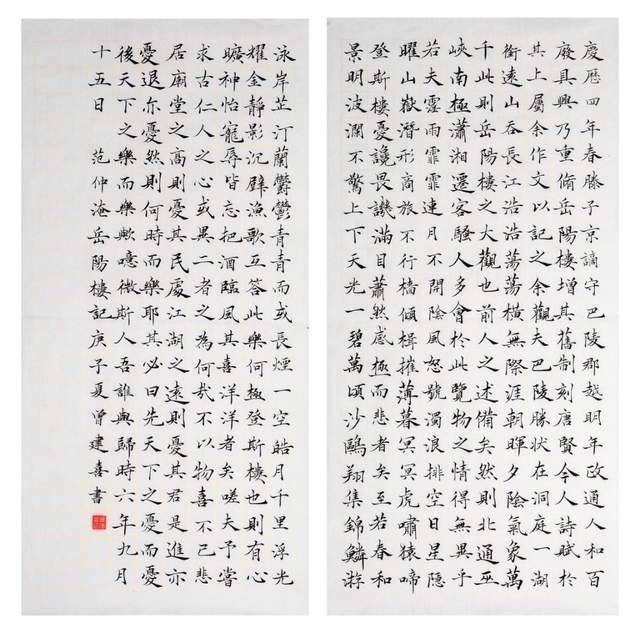 慶歷四年春滕子京謫守巴陵郡越明年政通人和百
廢具興乃重脩岳陽樓增其舊制刻唐賢今人詩賦於
其上屬余作文以記之余觀夫巴陵勝狀在洞庭一湖
銜遠山吞長江浩浩蕩蕩橫無際涯朝暉夕陰氣象萬
千此則岳陽樓之大觀也前人之述備矣然則北通巫
峽南極瀟湘遷客騷人多會於此覽物之情得無異乎
若夫霪雨霏霏連月不開陰風怒號濁浪排空日星隱
曜山嶽潛形商旅不行檣傾楫摧薄暮冥冥虎嘯猿啼
登斯樓憂讒畏譏滿目蕭然感極而悲者矣至若春和
景明波瀾不驚上下天光一碧萬頃沙鷗翔集錦鱗游
泳岸芷汀蘭鬱鬱青青而或長煙一空皓月千里浮光
耀金靜影沉璧漁歌互答此樂何極登斯樓也則有心
曠神怡寵辱皆忘把酒臨風其喜洋洋者矣嗟夫予嘗
求古仁人之心或異二者之為何哉不以物喜不已悲
居廟堂之高則憂其民處江湖之遠則憂其君是進亦
憂退亦憂然則何時而樂耶其必曰先天下之憂而憂
後天下之樂而樂歟噫微斯人吾誰與歸時六年九月
十五日 范仲淹岳陽樓記庚子夏曾建喜書